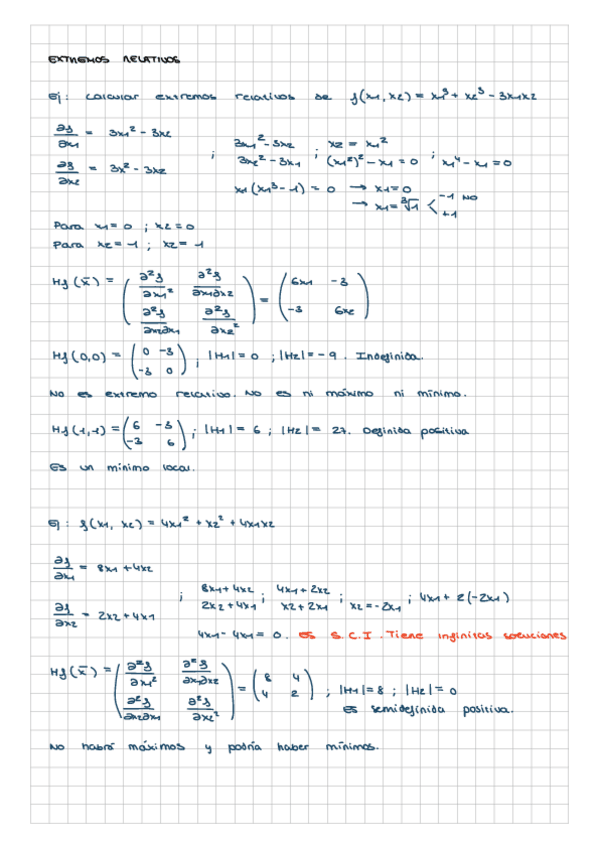 EXTREMOS RELATIVOS
Ej: Calcular extremos relativos de f(x1, x2) = x1³ + x2³ - 3x1x2
∂f/∂x1 = 3x1² - 3x2
∂f/∂x2 = 3x² - 3x2
; 3x1² - 3x2 ; x2 = x1² ;
3x2² - 3x1 (x1²)² - x1 = 0 x1⁴ - x1 = 0
x1(x1³ - 1) = 0 → x1 = 0
→ x1 = ∛1 < -1 NO
+1
Para x1 = 0 ; x2 = 0
Para x2 = 1 ; x2 = 1
Hf(x̄) = (∂²f/∂x1² ∂²f/∂x1∂x2 ; ∂²f/∂x2∂x1 ∂²f/∂x2²) = (6x1 -3 ; -3 6x2)
Hf(0,0) = (0 -3 ; -3 0) ; |H1| = 0 ; |H2| = -9. Indefinida.
No es extremo relativo. No es ni máximo ni mínimo.
Hf(1,1) = (6 -3 ; -3 6) ; |H1| = 6 ; |H2| = 27. Definida positiva
Es un mínimo local.
Ej: f(x1, x2) = 4x1² + x2² + 4x1x2
∂f/∂x1 = 8x1 + 4x2
∂f/∂x2 = 2x2 + 4x1
; 8x1 + 4x2 ; 4x1 + 2x2 ; ; 4x1 + 2(-2x1)
2x2 + 4x1 x2 + 2x1 x2 = -2x1
4x1 - 4x1 = 0. Es S.C.I. Tiene infinitas soluciones
Hf(x̄) = (∂²f/∂x1² ∂²f/∂x1∂x2 ; ∂²f/∂x2∂x1 ∂²f/∂x2²) = (8 4 ; 4 2) ; |H1| = 8 ; |H2| = 0
Es semidefinida positiva.
No habrá máximos y podría haber mínimos.